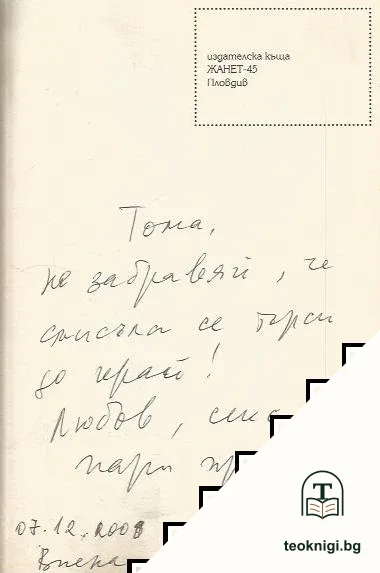 издателска къща
ЖАНЕТ-45
Пловдив
Тома,
не забравяй, че
смисъла се търси
до край!
Любов, секс
пари
07.12.2008
Виена
T
teoknigi.bg